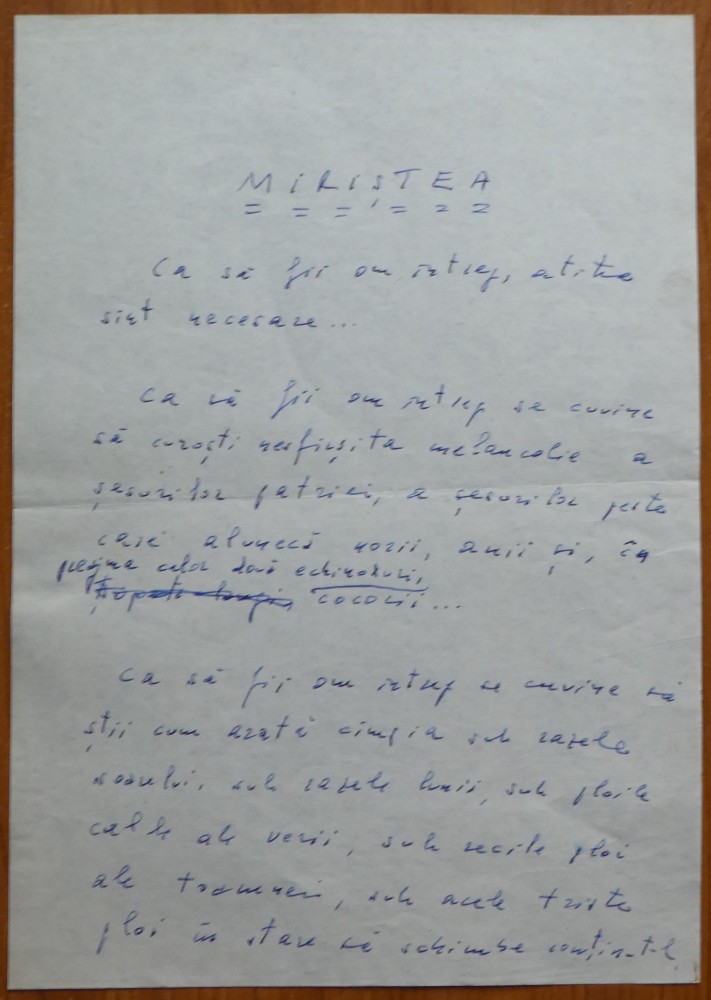 MIRIȘTEA
Ca să fii om intreg, atitea
sint necesare...
Ca să fii om intreg se cuvine
să cunoști nesfirșita melancolie a
șesurilor patriei, a șesurilor peste
care alunecă norii, anii și, în
preajma celor două echinoxuri,
cocorii...
Ca să fii om intreg se cuvine să
știi cum arată cimpia sub razele
soarelui, sub razele lunii, sub ploile
calde ale verii, sub recile ploi
ale toamnei, sub acele triste
ploi în stare să schimbe conținutul